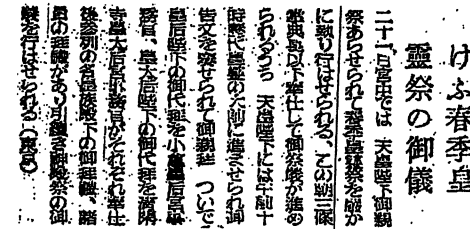 けふ春季皇
靈祭の御儀
二十一日宮中では 天皇陛下御親
祭あらせられて春季皇靈祭を嚴か
に執り行はせられる、この朝三條
掌典長以下奉仕して御祭儀が進め
られるうち 天皇陛下には午前十
時歷代皇靈の大前に進ませられ御
告文を奏せられて御親拜 ついで
皇后陛下の御代拜を小倉皇后宮
務官、皇太后陛下の御代拜を
皇太后宮事務官がそれぞれ奉仕
後參列の各皇族殿下の御拜禮、諸
員の拜禮があり引續き神殿祭の御
儀を行はせられる（東京）